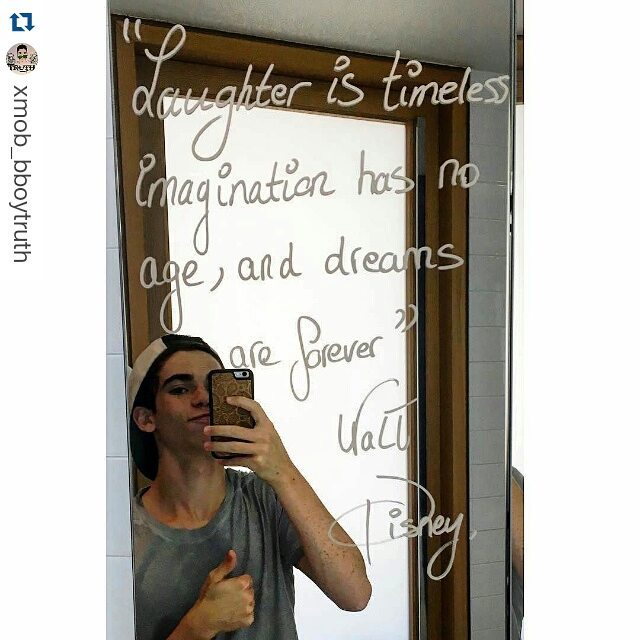 xmob_bboytruth
TRUTH
"Laughter is timeless
imagination has no
age, and dreams
are forever"
Walt
Disney.